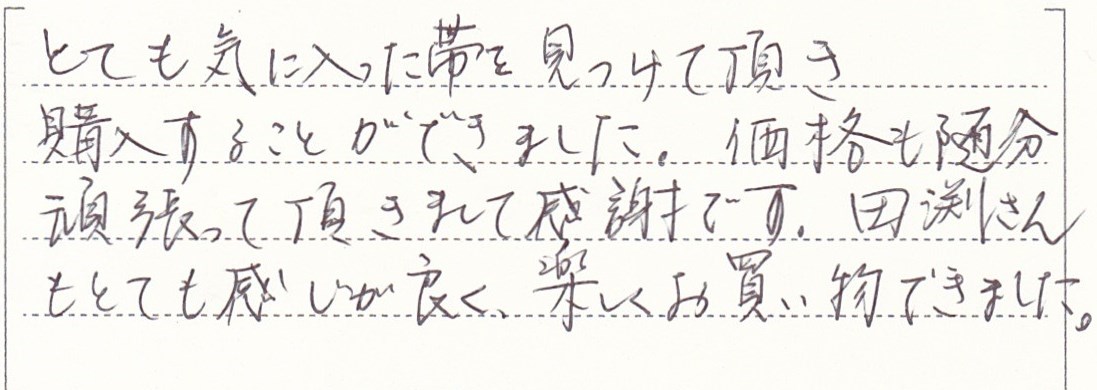 とても気に入った帯を見つけて頂き
購入することができました。価格も随分
頑張って頂きまして感謝です。田渕さん
もとても感じが良く、楽しくお買い物できました。